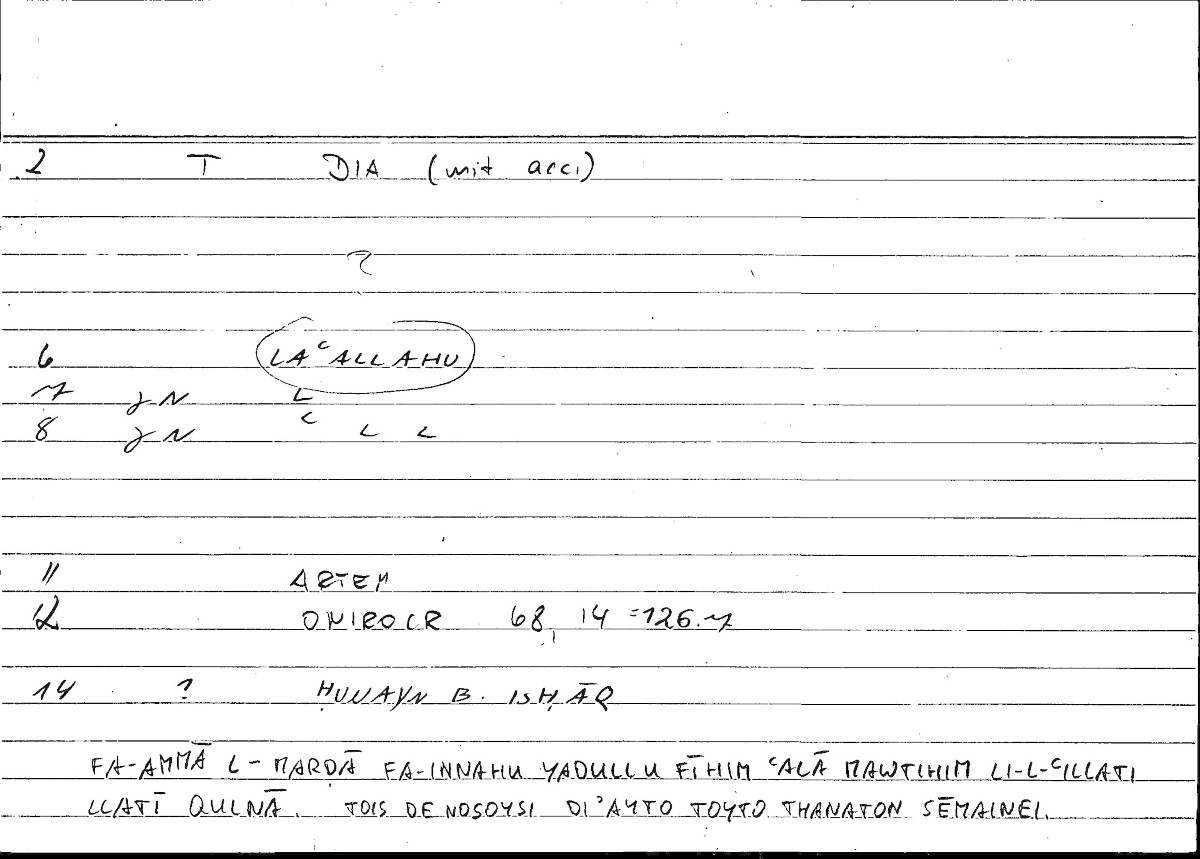 2 T DIA (mit acc.)
?
6 LAʿALLAHU
7 γN L
8 γN ʿ L L
11 ARTEM
12 ONIROCR 68, 14 = 126.7
14 ? ḤUNAYN B. ISḤĀQ
FA-AMMĀ L-MARḌĀ FA-INNAHU YADULLU FĪHIM ʿALĀ MAWTIHIM LI-L-ʿILLATI
LLATĪ QULNĀ. TOIS DE NOSOYSI DI'AYTO TOYTO THANATON SĒMAINEI.